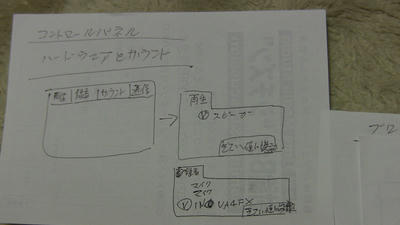 コントロールパネル
ハードウェアとサウンド
再生 録音 サウンド 通信
再生
スピーカー
きてい値に設定
録音
マイク
マイク
IN UA4FX
きてい値に設定
プロ